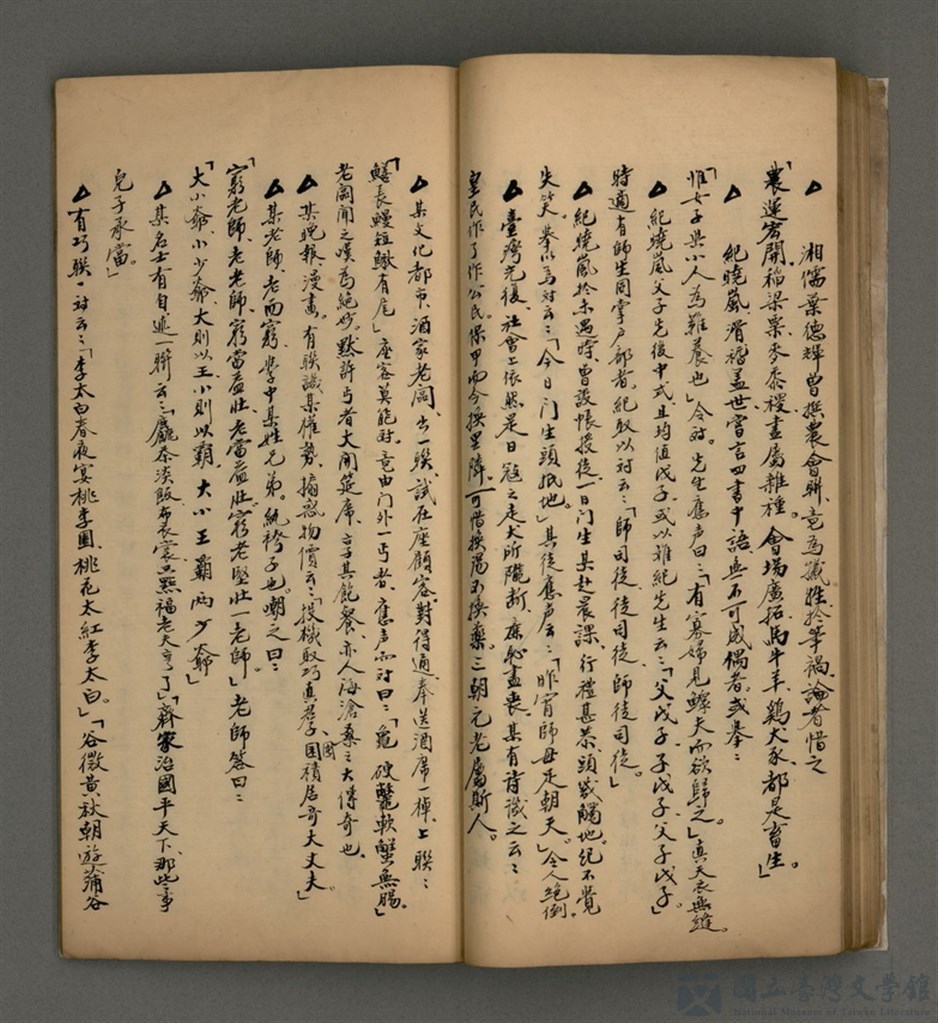 △ 湘儒葉德輝曾撰農會聯、竟為纖姓於筆禍、論者惜之
「農運宏開、稻梁粟麥黍稷、盡屬雜種。會場廣拓、馬牛羊、鷄犬豕、都是畜生。」
△ 紀曉嵐、滑稽蓋世、嘗言四書中語無不可成偶者。或舉：
「惟女子與小人為難養也」令對。先生應声曰：「有寡婦見鰥夫而欲歸之。」真天衣無縫。
△ 紀曉嵐父子先後中式、且均值戊子、或以難紀先生云：「父戊子、子戊子、父子戊子」
時適有師生同掌戶部者、紀取以对云：「師司徒、徒司徒、師徒司徒。」
△ 紀曉嵐於未遇時、曾設帳授徒、一日门生某赴晨課、行禮甚恭、頭幾觸地。紀不覺
失笑。拳以為对云：「今日门生頭抵地。」其徒應声云：「昨宵師母足朝天。」令人絕倒。
△ 臺灣光復、社會上依然是日寇之走犬所隴断、廉恥盡喪、某有詩識之云：
皇民作了作公民、保甲而今換里隣。可惜換湯不換藥。三朝元老屬斯人。
△ 某文化都市、酒家老闆、出一联、試在座顧客、對得通、奉送酒席一棹、上聯：
「鱔長鰻短鰍有尾」座客莫能对。竟由门外一丐者、應声而对曰：「龜硬鱉軟蟹無腸」
老闆聞之嘆為絕妙。默許丐者大開筵席、享其飽餐、亦人海滄桑之大傳奇也。
△ 某晚報、漫畫。有联譏某權勢、搧惑物價云：「投機取巧真君子、囤積居奇大丈夫」
△ 某老師、老而窮、學中某姓兄弟。紈袴子也。嘲之曰：
「窮老師、老老師、窮當益壯、老當益壯、窮老堅壯一老師。」老師答曰：
「大小爺、小少爺、大則以王、小則以霸、大小王霸兩少爺」
△ 某名士有自述一聯云：「麤茶淡飯布衣裳、這點福老夫享了」「齊家治國平天下、那些事
兒子承當。」
△ 有巧聯一对云：「李太白春夜宴桃李園、桃花太紅李太白。」「谷微黄秋朝遊蒲谷